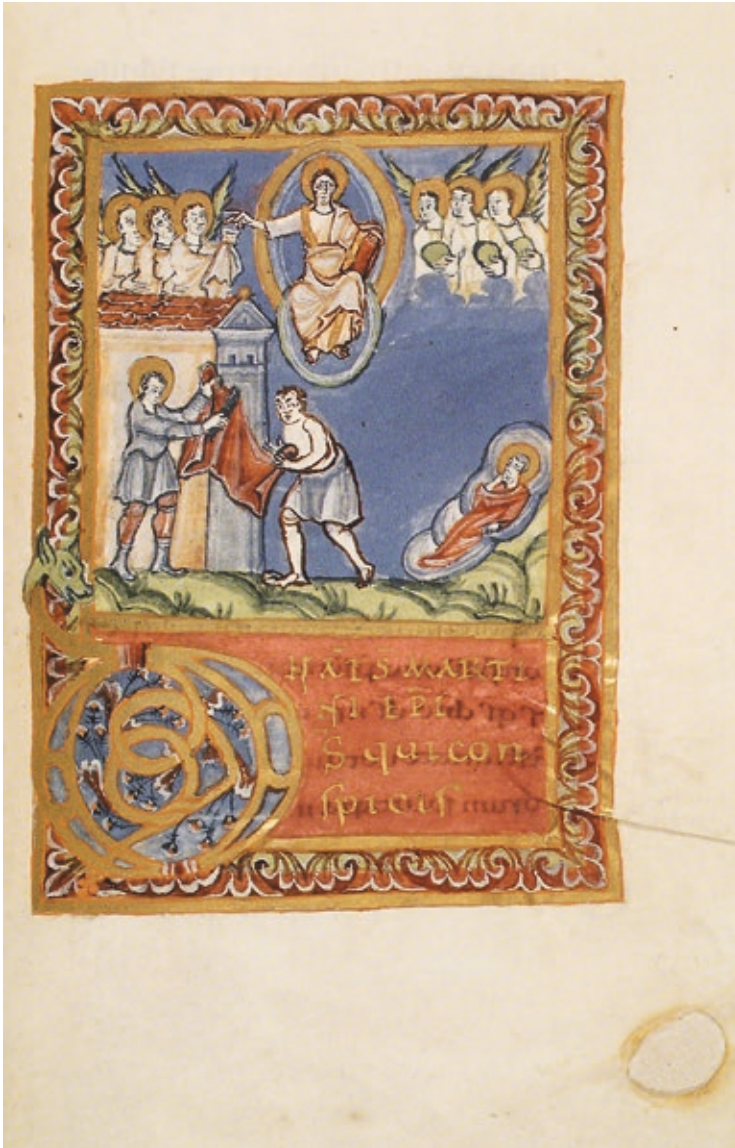 NAT̄ S̄ MARTI
NI EP̄I
D̄S qui con
spicis